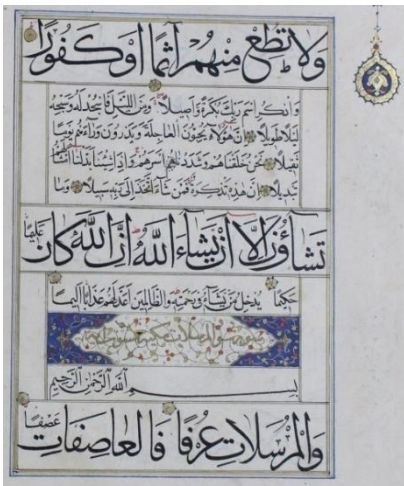 ولا تطع منهم آثما أو كفورا
واذكر اسم ربك بكرة وأصيلا ومن الليل فاسجد له وسبحه
ليلا طويلا إن هؤلاء يحبون العاجلة ويذرون وراءهم يوما
ثقيلا نحن خلقناهم وشددنا أسرهم وإذا شئنا بدلنا أمثالهم
تبديلا إن هذه تذكرة فمن شاء اتخذ إلى ربه سبيلا وما
تشاؤن إلا أن يشاء الله إن الله كان عليما
حكيما يدخل من يشاء في رحمته والظالمين أعد لهم عذابا أليما
بسم الله الرحمن الرحيم
والمرسلات عرفا فالعاصفات عصفا